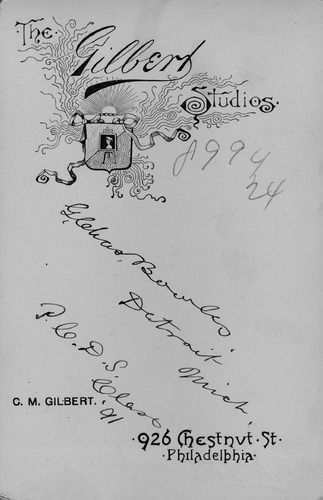 The
Gilbert
Studios.
8994
24
Chas. Bowles
Detroit Mich
P. C. D. S.
Class
91
C. M. GILBERT.
926 Chestnut St.
Philadelphia